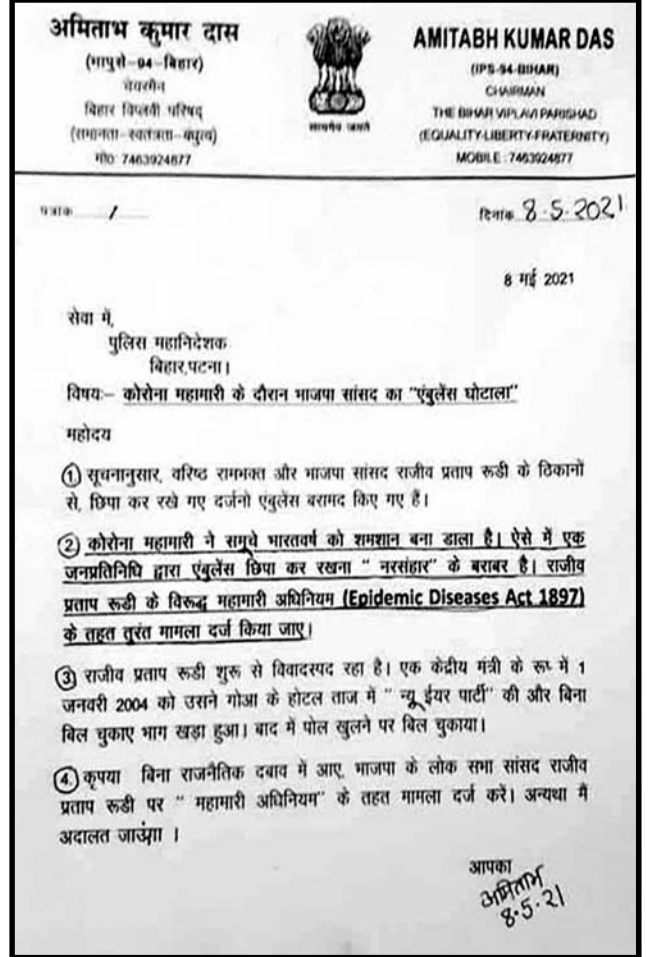 अमिताभ कुमार दास
(भापुसे-94-बिहार)
चेयरमैन
बिहार विप्लवी परिषद
(समानता-स्वतंत्रता-बंधुत्व)
मो0: 7463924677
सत्यमेव जयते
AMITABH KUMAR DAS
(IPS-94-BIHAR)
CHAIRMAN
THE BIHAR VIPLAVI PARISHAD
(EQUALITY-LIBERTY-FRATERNITY)
MOBILE : 7463924677
पत्रांक 1
दिनांक 8.5.2021
8 मई 2021
सेवा में,
पुलिस महानिदेशक
बिहार,पटना।
विषय:– कोरोना महामारी के दौरान भाजपा सांसद का "एंबुलेंस घोटाला"
महोदय
1) सूचनानुसार, वरिष्ठ रामभक्त और भाजपा सांसद राजीव प्रताप रूडी के ठिकानों
से, छिपा कर रखे गए दर्जनो एंबुलेंस बरामद किए गए हैं।
2) कोरोना महामारी ने समूचे भारतवर्ष को शमशान बना डाला है। ऐसे में एक
जनप्रतिनिधि द्वारा एंबुलेंस छिपा कर रखना " नरसंहार" के बराबर है। राजीव
प्रताप रूडी के विरूद्ध महामारी अधिनियम (Epidemic Diseases Act 1897)
के तहत तुरंत मामला दर्ज किया जाए।
3) राजीव प्रताप रूडी शुरू से विवादस्पद रहा है। एक केंद्रीय मंत्री के रूप में 1
जनवरी 2004 को उसने गोआ के होटल ताज में " न्यू ईयर पार्टी" की और बिना
बिल चुकाए भाग खड़ा हुआ। बाद में पोल खुलने पर बिल चुकाया।
4) कृपया बिना राजनैतिक दबाव में आए, भाजपा के लोक सभा सांसद राजीव
प्रताप रूडी पर " महामारी अधिनियम" के तहत मामला दर्ज करें। अन्यथा मैं
अदालत जाउंगा ।
आपका
अमिताभ
8.5.21